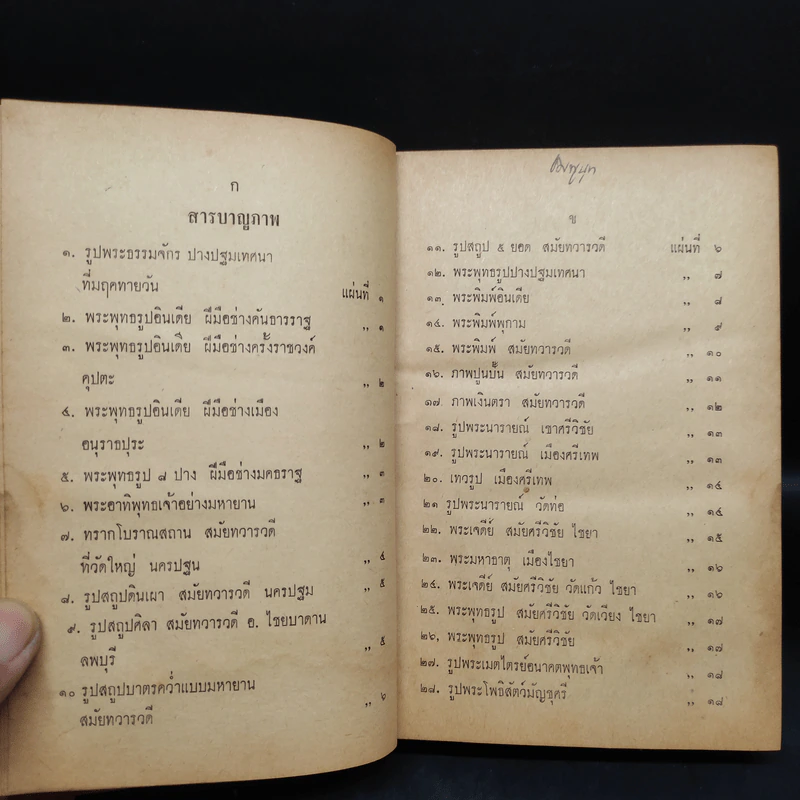 ก
สารบาญภาพ
๑. รูปพระธรรมจักร ปางปฐมเทศนา
ที่มฤคทายวัน แผ่นที่ ๑
๒. พระพุทธรูปอินเดีย ฝีมือช่างคันธารราฐ ,, ๑
๓. พระพุทธรูปอินเดีย ฝีมือช่างครั้งราชวงศ์
คุปตะ ,, ๒
๔. พระพุทธรูปอินเดีย ฝีมือช่างเมือง
อนุราธปุระ ,, ๒
๕. พระพุทธรูป ๘ ปาง ฝีมือช่างมคธราฐ ,, ๓
๖. พระอาทิพุทธเจ้าอย่างมหายาน ,, ๓
๗. ทรากโบราณสถาน สมัยทวารวดี
ที่วัดใหญ่ นครปฐม ,, ๔
๘. รูปสถูปดินเผา สมัยทวารวดี นครปฐม ,, ๕
๙. รูปสถูปศิลา สมัยทวารวดี อ. ไชยบาดาน
ลพบุรี ,, ๕
๑๐ รูปสถูปบาตรคว่ำแบบมหายาน
สมัยทวารวดี ,, ๖
ข
๑๑. รูปสถูป ๕ ยอด สมัยทวารวดี แผ่นที่ ๖
๑๒. พระพุทธรูปปางปฐมเทศนา ,, ๗
๑๓. พระพิมพ์อินเดีย ,, ๘
๑๔. พระพิมพ์พุกาม ,, ๙
๑๕. พระพิมพ์ สมัยทวารวดี ,, ๑๐
๑๖. ภาพปูนปั้น สมัยทวารวดี ,, ๑๑
๑๗. ภาพเงินตรา สมัยทวารวดี ,, ๑๒
๑๘. รูปพระนารายณ์ เขาศรีวิชัย ,, ๑๓
๑๙. รูปพระนารายณ์ เมืองศรีเทพ ,, ๑๓
๒๐. เทวรูป เมืองศรีเทพ ,, ๑๔
๒๑ รูปพระนารายณ์ วัดท่อ ,, ๑๔
๒๒. พระเจดีย์ สมัยศรีวิชัย ไชยา ,, ๑๕
๒๓. พระมหาธาตุ เมืองไชยา ,, ๑๖
๒๔. พระเจดีย์ สมัยศรีวิชัย วัดแก้ว ไชยา ,, ๑๖
๒๕. พระพุทธรูป สมัยศรีวิชัย วัดเวียง ไชยา ,, ๑๗
๒๖, พระพุทธรูป สมัยศรีวิชัย ,, ๑๗
๒๗. รูปพระเมตไตรย์อนาคตพุทธเจ้า ,, ๑๘
๒๘. รูปพระโพธิสัตว์มัญชุศรี ,, ๑๘